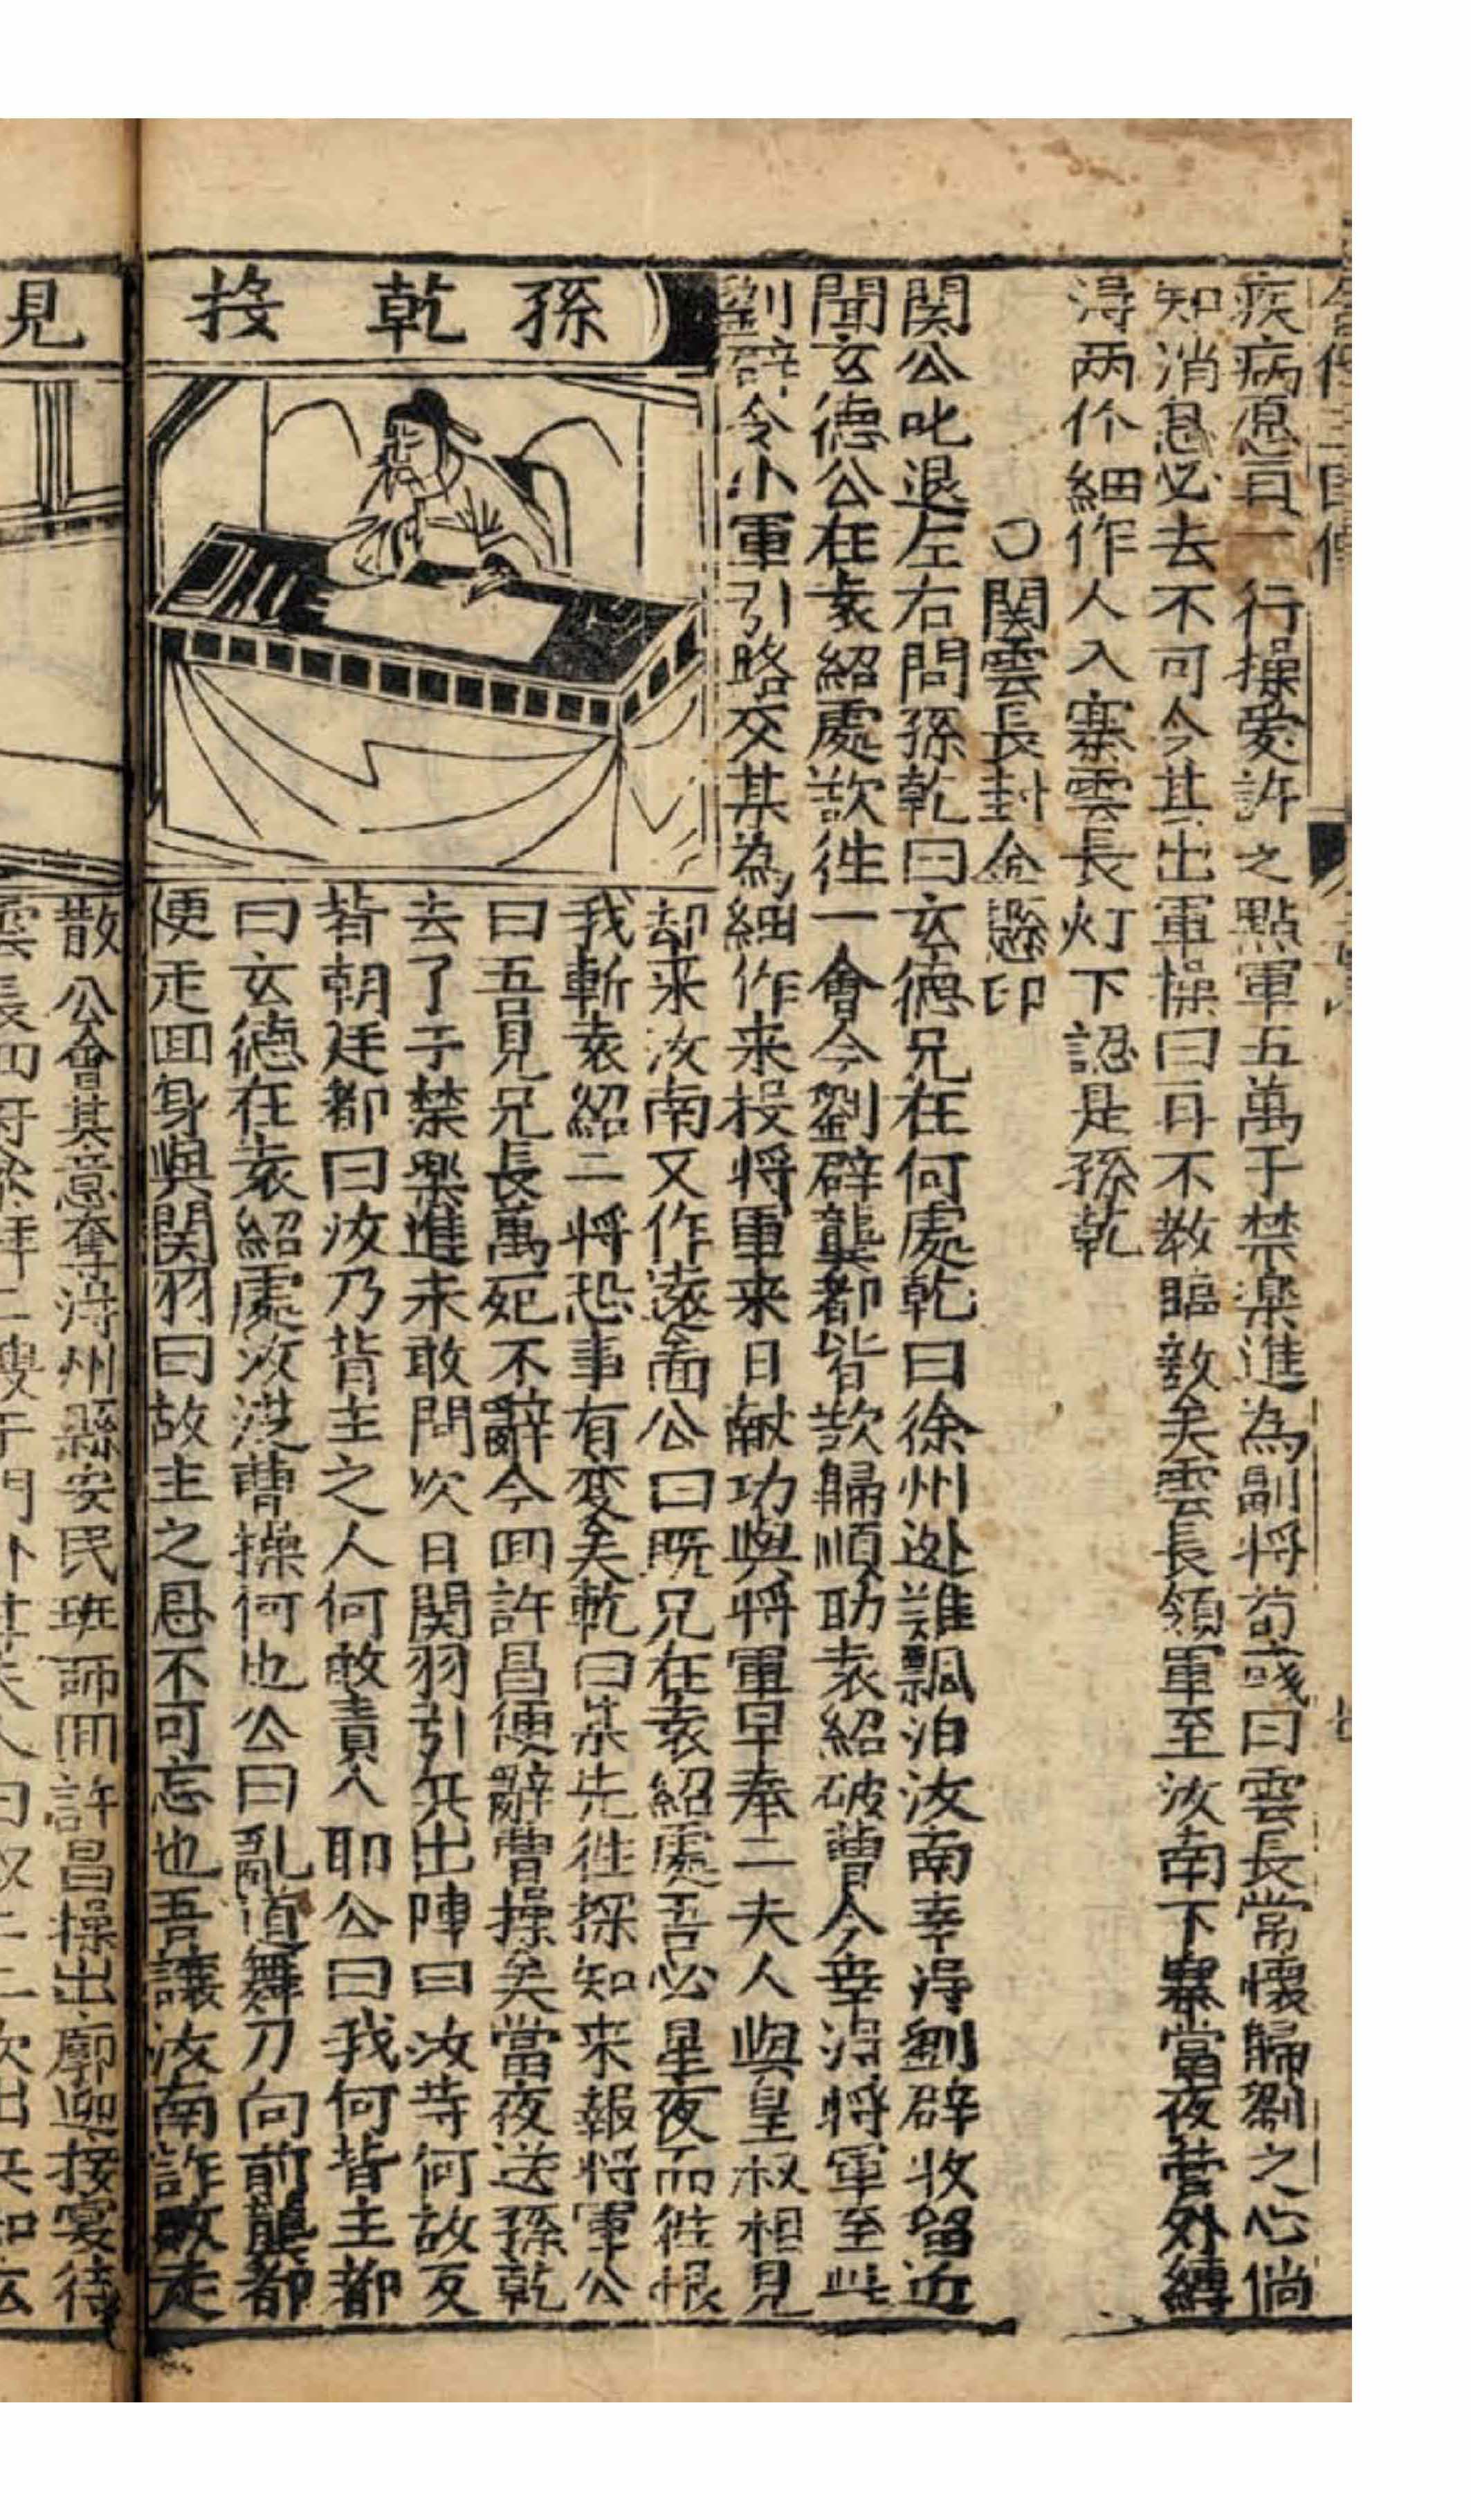 疾病愿貟一行操愛許之點軍五萬于禁楽進為副将荀彧曰雲長常懷歸劉之心倘
知消息必去不可令其出軍操曰再不教臨敵矣雲長領軍至汝南下寨當夜营外縳
淂两个細作人入寨雲長灯下認是孫乾
○関雲長封金懸印
関公叱退左右問孫乾曰玄德兄在何處乾曰徐州迯難飄泊汝南幸淂劉辟收留近
聞玄德公在袁紹處欲徃一會今劉辟龔都皆欲歸順助袁紹破曹今幸淂將軍至此
劉辟令小軍引路交某為細作来投將軍来日献功與將軍早奉二夫人與皇叔相見
孫乾接
却来汝南又作遠啚公曰既兄在袁紹處吾必星夜而徃恨
我斬袁紹二将恐事有变矣乾曰某先徃探知来報將軍公
曰吾見兄長萬死不辭今囬許昌便辭曹操矣當夜送孫乾
去了于禁楽進未敢問次日関羽引兵出陣曰汝䓁何故反
背朝廷都曰汝乃背主之人何敢責人耶公曰我何背主都
曰玄德在袁紹處汝従曹操何也公曰乱道舞刀向前龔都
便走囬身與関羽曰故主之恩不可忘也吾讓汝南詐敗走
見
散公會其意奪淂州縣安民班師囬許昌操出廓迎接宴待